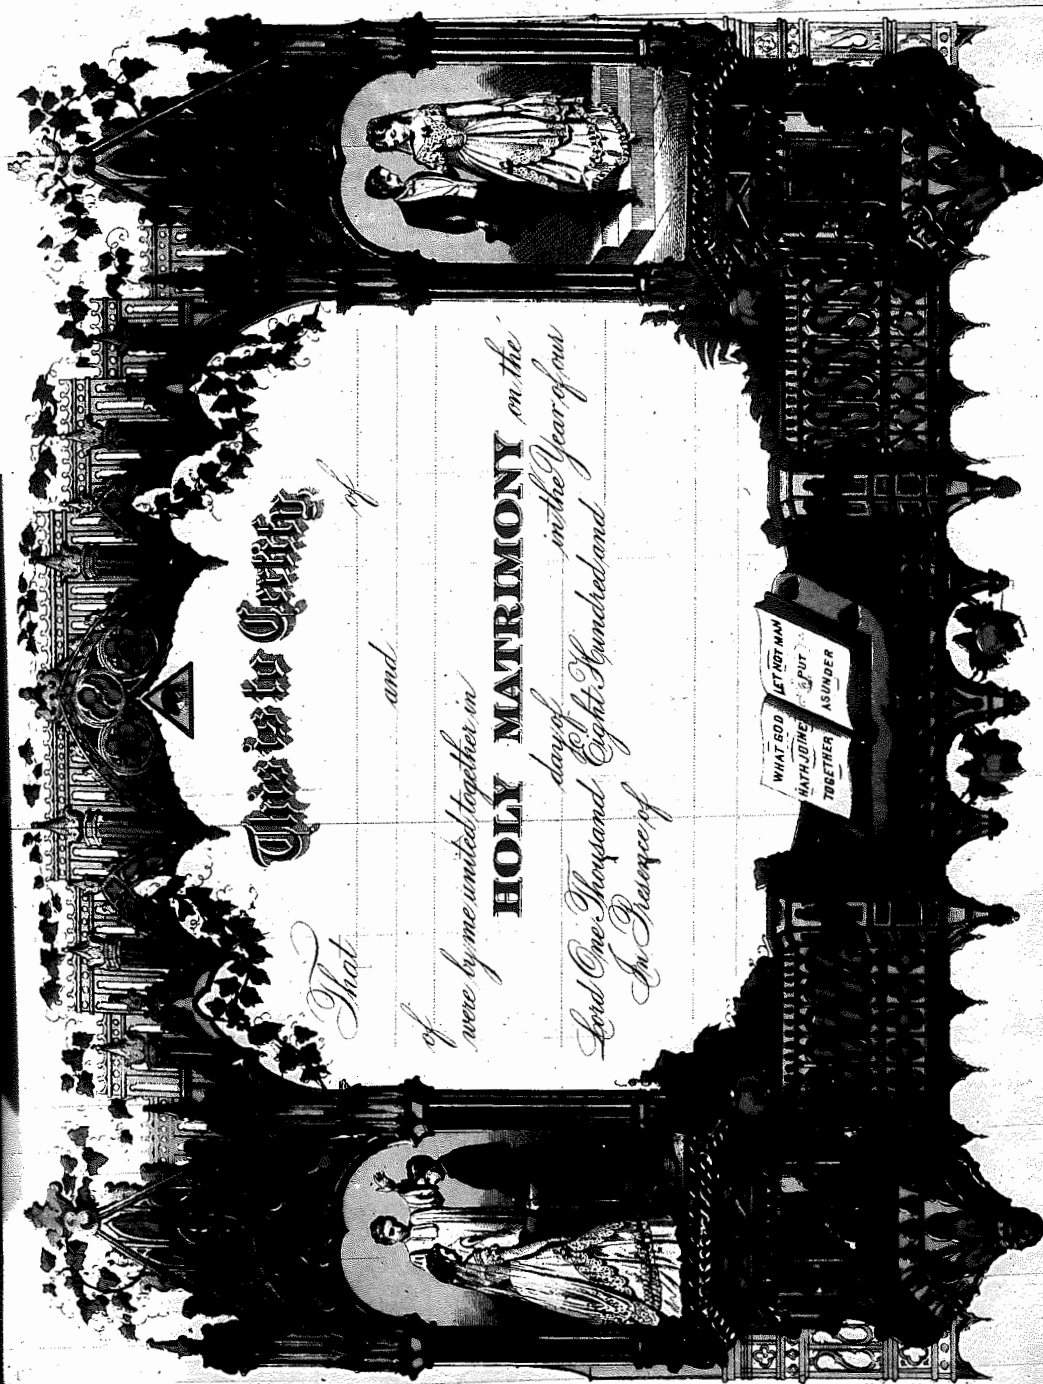 This is to Certify
That of
and
of
were by me united together in
HOLY MATRIMONY on the
day of in the Year of our
Lord One Thousand Eight Hundred and
In Presence of
WHAT GOD
HATH JOINED
TOGETHER
LET NOT MAN
PUT
ASUNDER